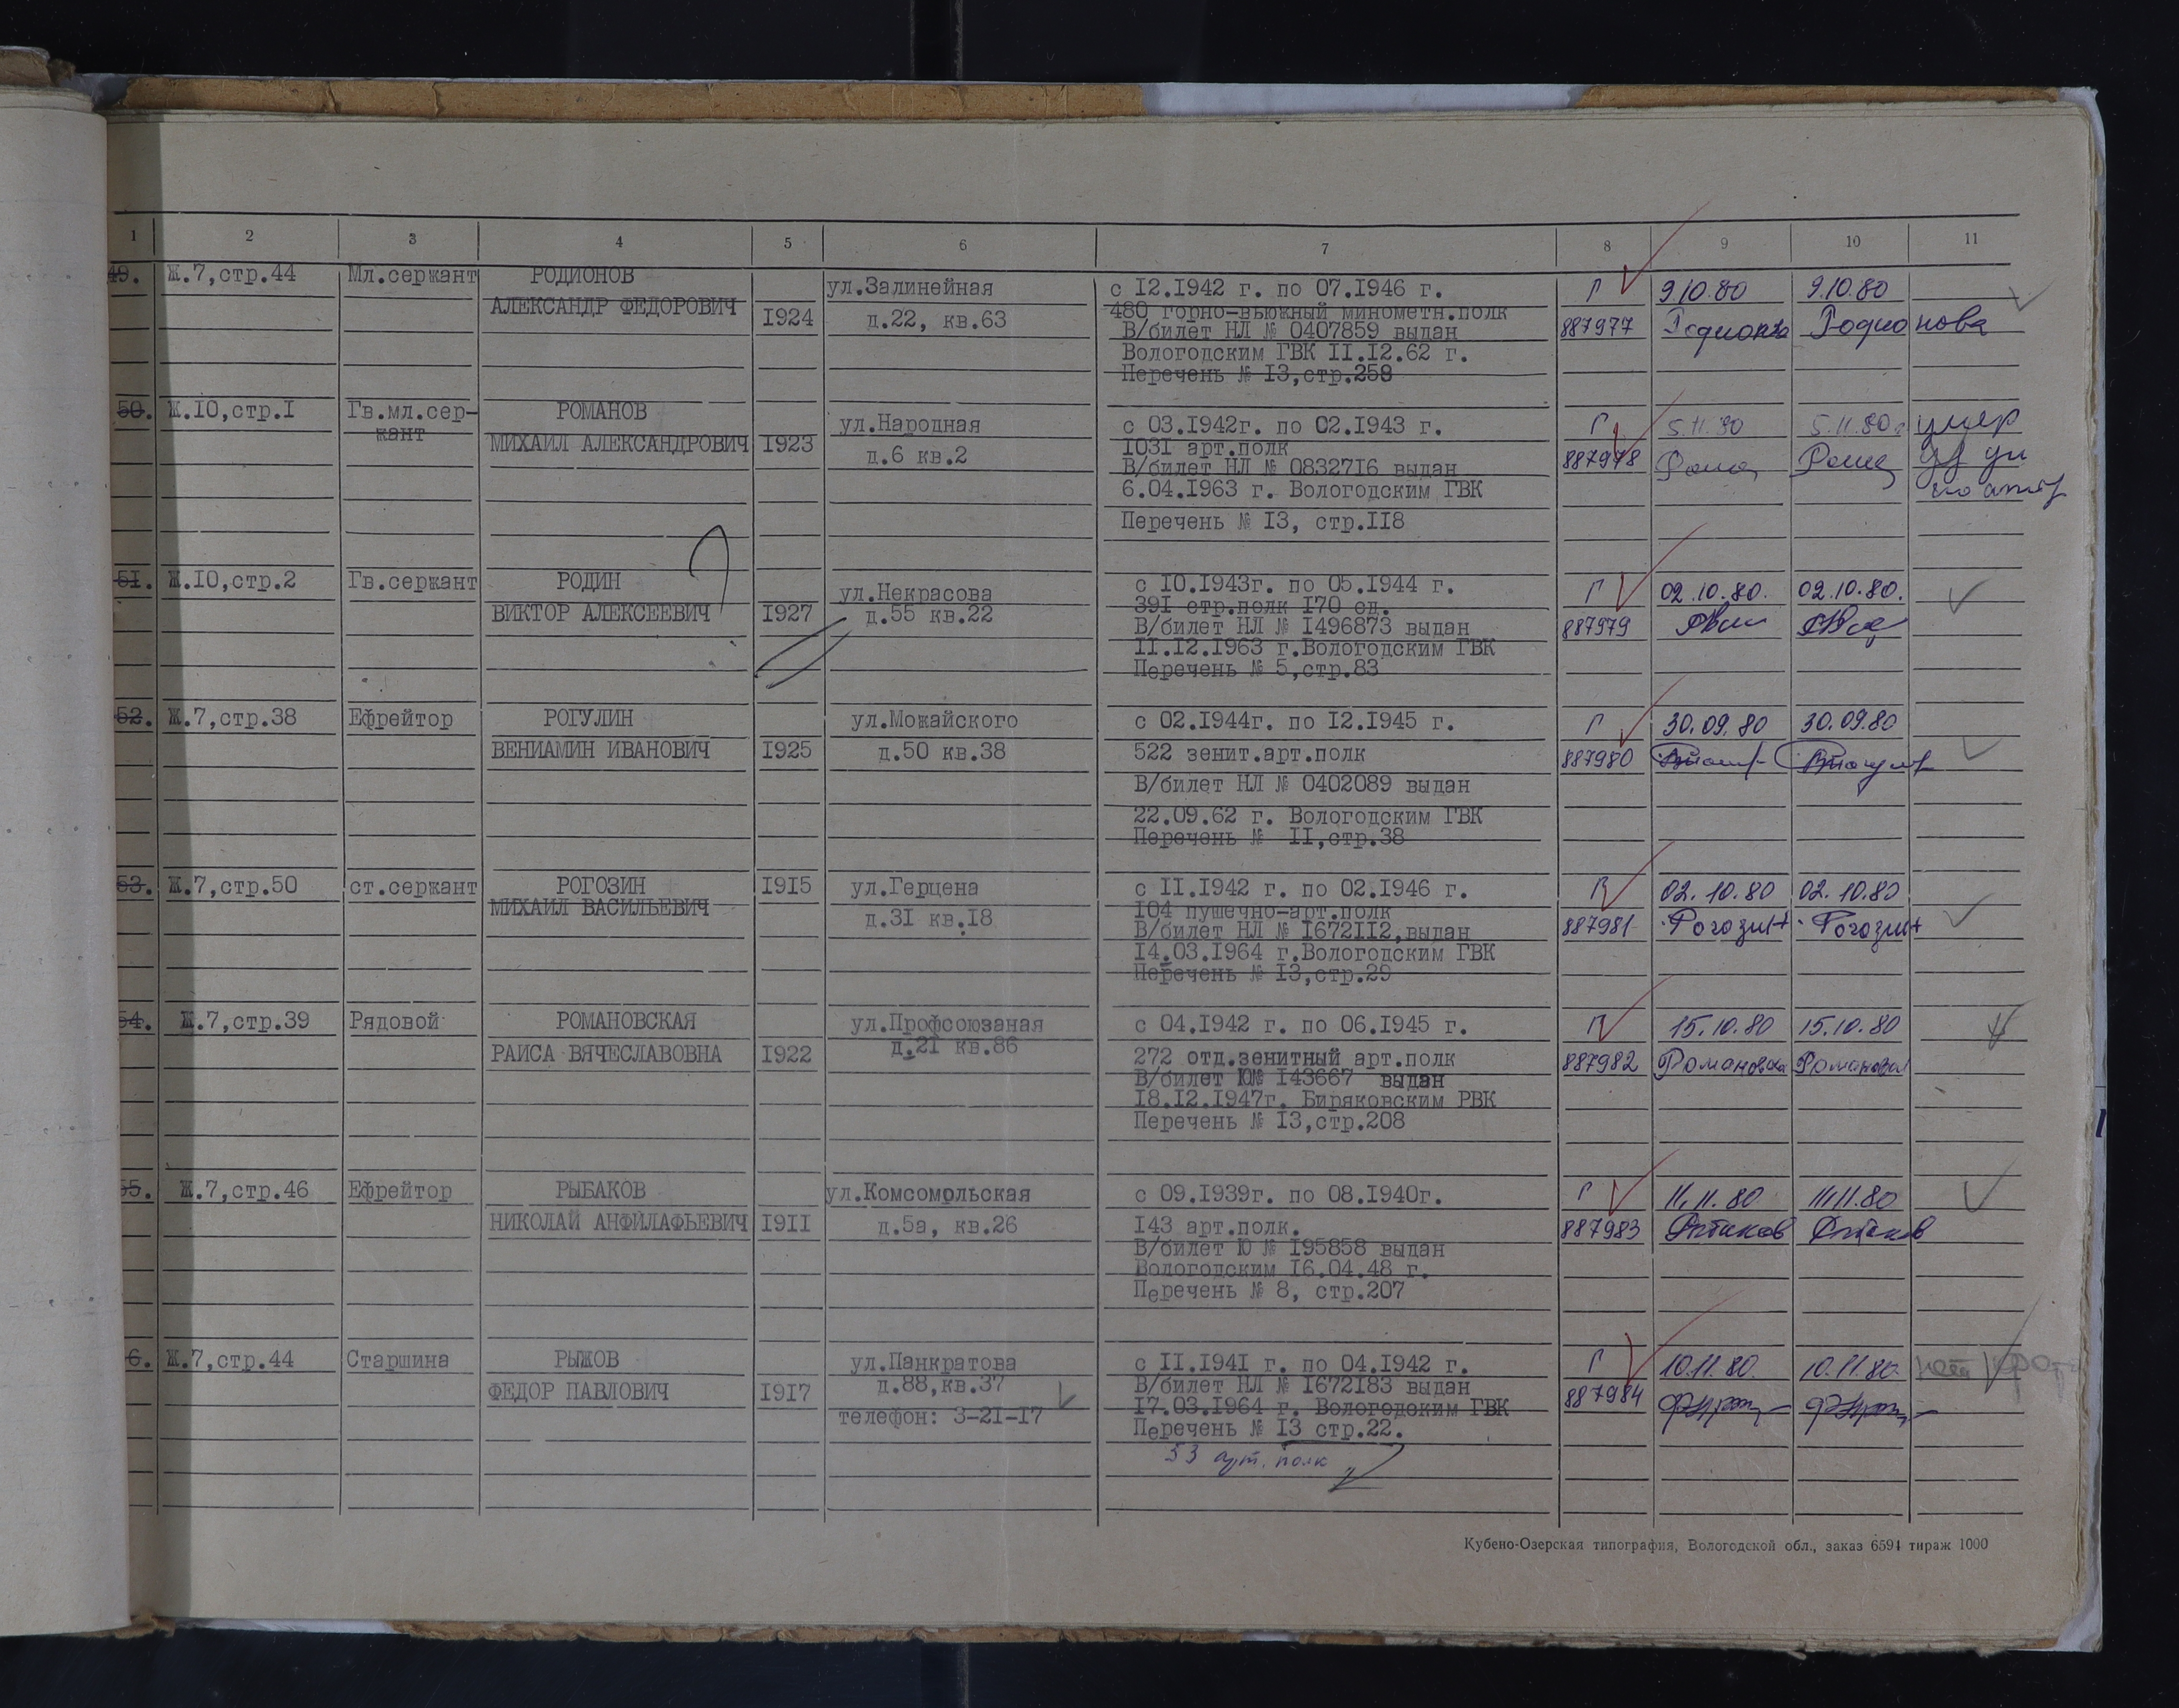 1 2 3 4 5 6 7 8 9 10 11
49. Ж.7,стр.44 Мл.сержант РОДИОНОВ
АЛЕКСАНДР ФЕДОРОВИЧ 1924
ул.Залинейная
д.22, кв.63
с 12.1942 г. по 07.1946 г.
480 горно-вьюжный минометн.полк
В/билет НЛ № 0407859 выдан
Вологодским ГВК 11.12.62 г.
Перечень № 13,стр.258
Г 9.10.80 9.10.80
887977 Родионова Родионова
50. Ж.10,стр.1 Гв.мл.сер-
жант
РОМАНОВ
МИХАИЛ АЛЕКСАНДРОВИЧ 1923
ул.Народная
д.6 кв.2
с 03.1942г. по 02.1943 г.
1031 арт.полк
В/билет НЛ № 0832716 выдан
6.04.1963 г. Вологодским ГВК
Перечень № 13, стр.118
Г 5.11.80 5.11.80г умер
887978
51. Ж.10,стр.2 Гв.сержант РОДИН
ВИКТОР АЛЕКСЕЕВИЧ 1927
ул.Некрасова
д.55 кв.22
с 10.1943г. по 05.1944 г.
391 стр.полк 170 сд.
В/билет НЛ № 1496873 выдан
11.12.1963 г.Вологодским ГВК
Перечень № 5,стр.83
Г 02.10.80. 02.10.80.
887979
52. Ж.7,стр.38 Ефрейтор РОГУЛИН
ВЕНИАМИН ИВАНОВИЧ 1925
ул.Можайского
д.50 кв.38
с 02.1944г. по 12.1945 г.
522 зенит.арт.полк
В/билет НЛ № 0402089 выдан
22.09.62 г. Вологодским ГВК
Перечень № 11,стр.38
Г 30.09.80 30.09.80
887980
53. Ж.7,стр.50 ст.сержант РОГОЗИН 1915
МИХАИЛ ВАСИЛЬЕВИЧ
ул.Герцена
д.31 кв.18
с 11.1942 г. по 02.1946 г.
104 пушечно-арт.полк
В/билет НЛ № 1672112,выдан
14.03.1964 г.Вологодским ГВК
Перечень № 13,стр.29
Г 02.10.80 02.10.80
887981 Рогозин Рогозин
54. Ж.7,стр.39 Рядовой РОМАНОВСКАЯ
РАИСА ВЯЧЕСЛАВОВНА 1922
ул.Профсоюзаная
д.21 кв.86
с 04.1942 г. по 06.1945 г.
272 отд.зенитный арт.полк
В/билет Ю№ 143667 выдан
18.12.1947г. Биряковским РВК
Перечень № 13,стр.208
Г 15.10.80 15.10.80
887982 Романовска Романовск
55. Ж.7,стр.46 Ефрейтор РЫБАКОВ
НИКОЛАЙ АНФИЛАФЬЕВИЧ 1911
ул.Комсомольская
д.5а, кв.26
с 09.1939г. по 08.1940г.
143 арт.полк.
В/билет Ю № 195858 выдан
Вологодским 16.04.48 г.
Перечень № 8, стр.207
Г 11.11.80 11.11.80
887983
6. Ж.7,стр.44 Старшина РЫЖОВ
ФЕДОР ПАВЛОВИЧ 1917
ул.Панкратова
д.88,кв.37
телефон: 3-21-17
с 11.1941 г. по 04.1942 г.
В/билет НЛ № 1672183 выдан
17.03.1964 г. Вологодским ГВК
Перечень № 13 стр.22.
53 арт. полк
Г 10.11.80. 10.11.80.
887984
Кубено-Озерская типография, Вологодской обл., заказ 6594 тираж 1000